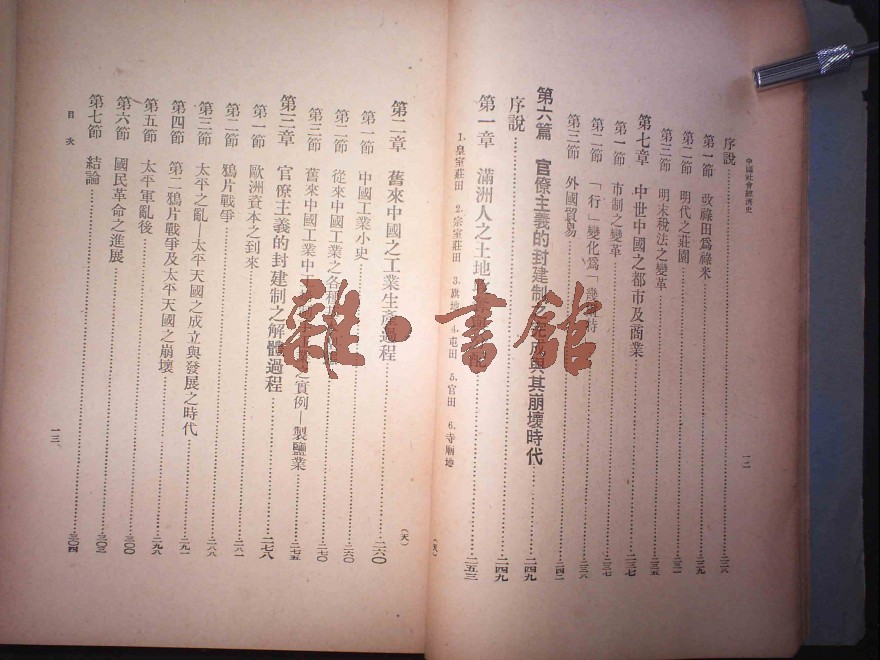 中國社會經濟史
一二
序說……二二八
第一節 改祿田爲祿米……二二九
第二節 明代之莊園……二三一
第三節 明末稅法之變革……二三五
第七章 中世中國之都市及商業……二三七
第一節 市制之變革……二三七
第二節 「行」變化爲「
第三節 外國貿易……二四二
第六篇 官僚主義的封建制之完成與其崩壞時代……二四九
序說……二四九
第一章 滿洲人之土地……二五三
1.皇室莊田 2.宗室莊田 3.旗地 4.屯田 5.官田 6.寺廟地
第二章 舊來中國之工業生產過程……二六〇
第一節 中國工業小史……二六〇
第二節 從來中國工業之各種……二六〇
第三節 舊來中國工業中之實例—製鹽業……二七〇
第三章 官僚主義的封建制之解體過程……二七五
第一節 歐洲資本之到來……二七八
第二節 鴉片戰爭……二八一
第三節 太平之亂—太平天國之成立與發展之時代……二八八
第四節 第二鴉片戰爭及太平天國之崩壞……二九一
第五節 太平軍亂後……二九八
第六節 國民革命之進展……三〇〇
第七節 結論……三〇三
……三〇四
目次
一三
雜·書館